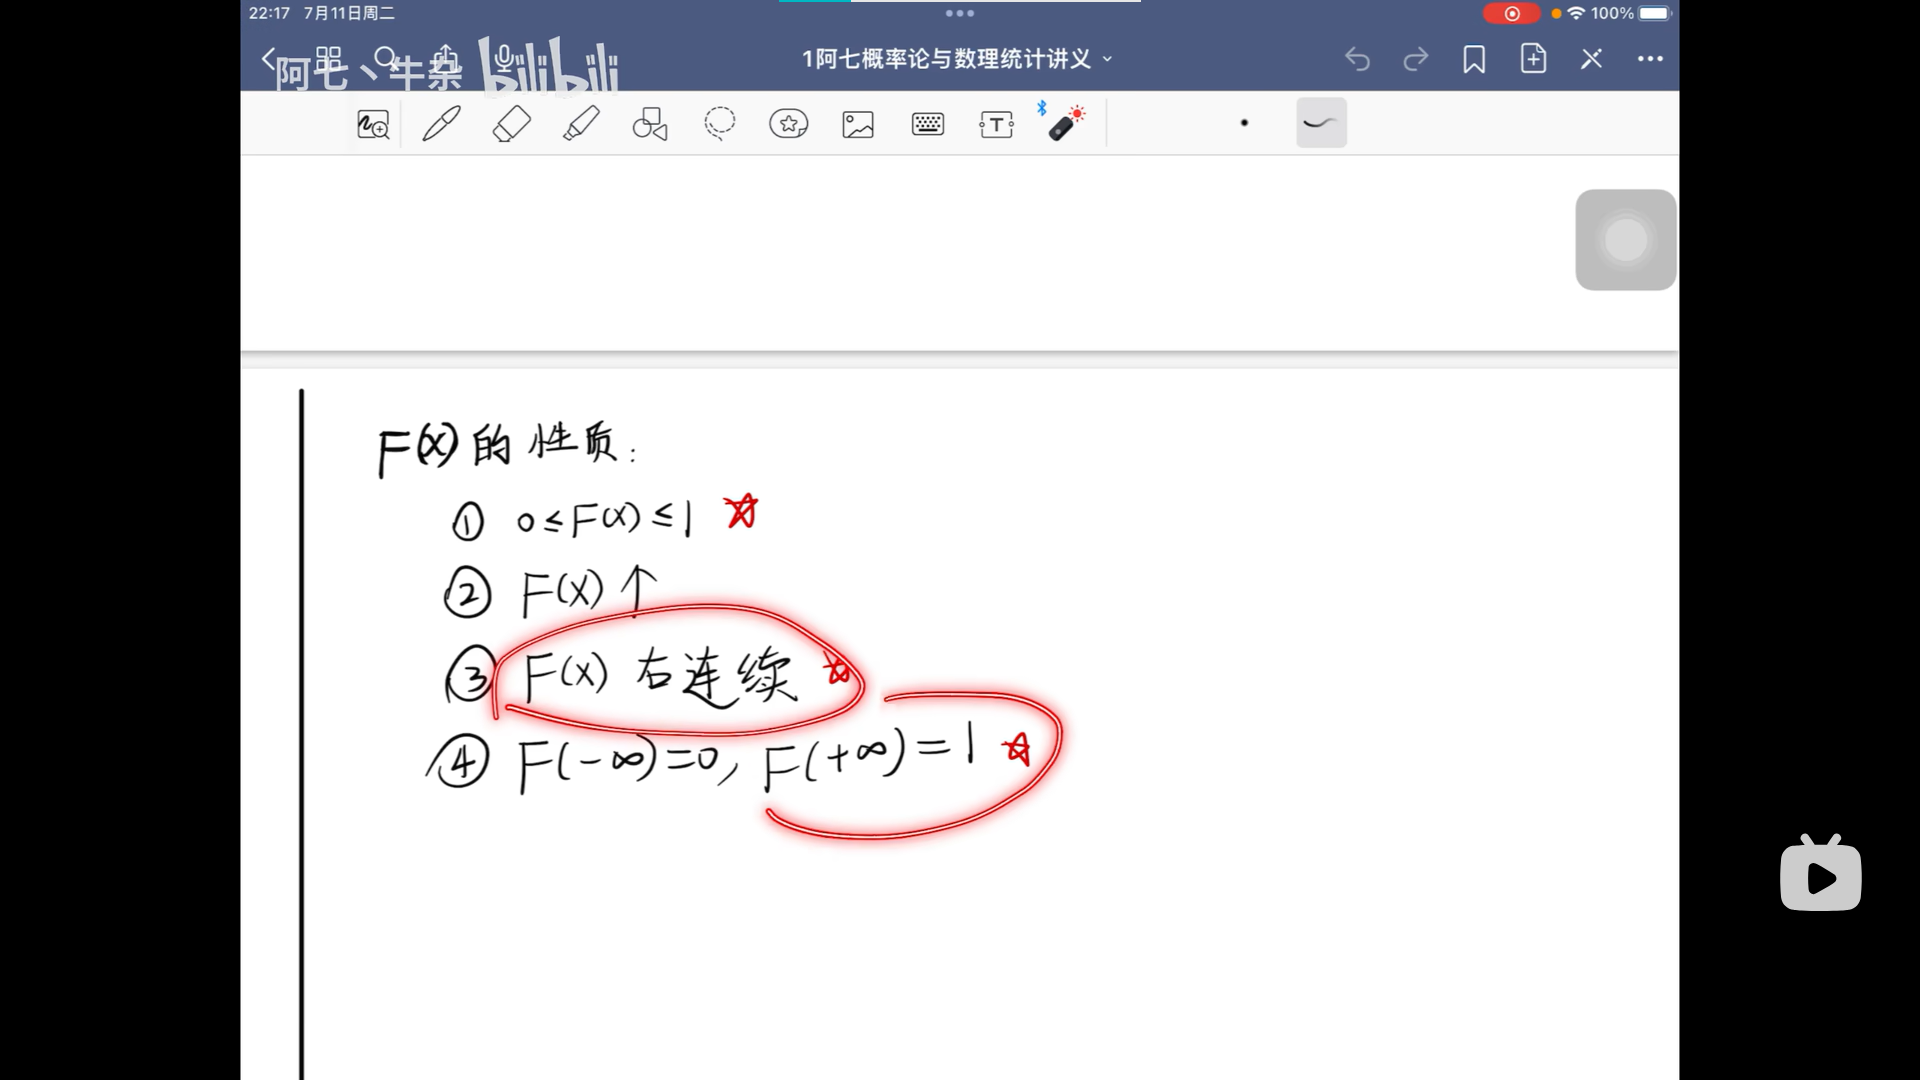 22:17 7月11日周二
100%
阿七丶牛杂 bilibili
1阿七概率论与数理统计讲义
T
F(x)的性质:
① 0≤F(x)≤1
② F(x)↑
③ F(x) 右连续
④ F(-∞)=0, F(+∞)=1